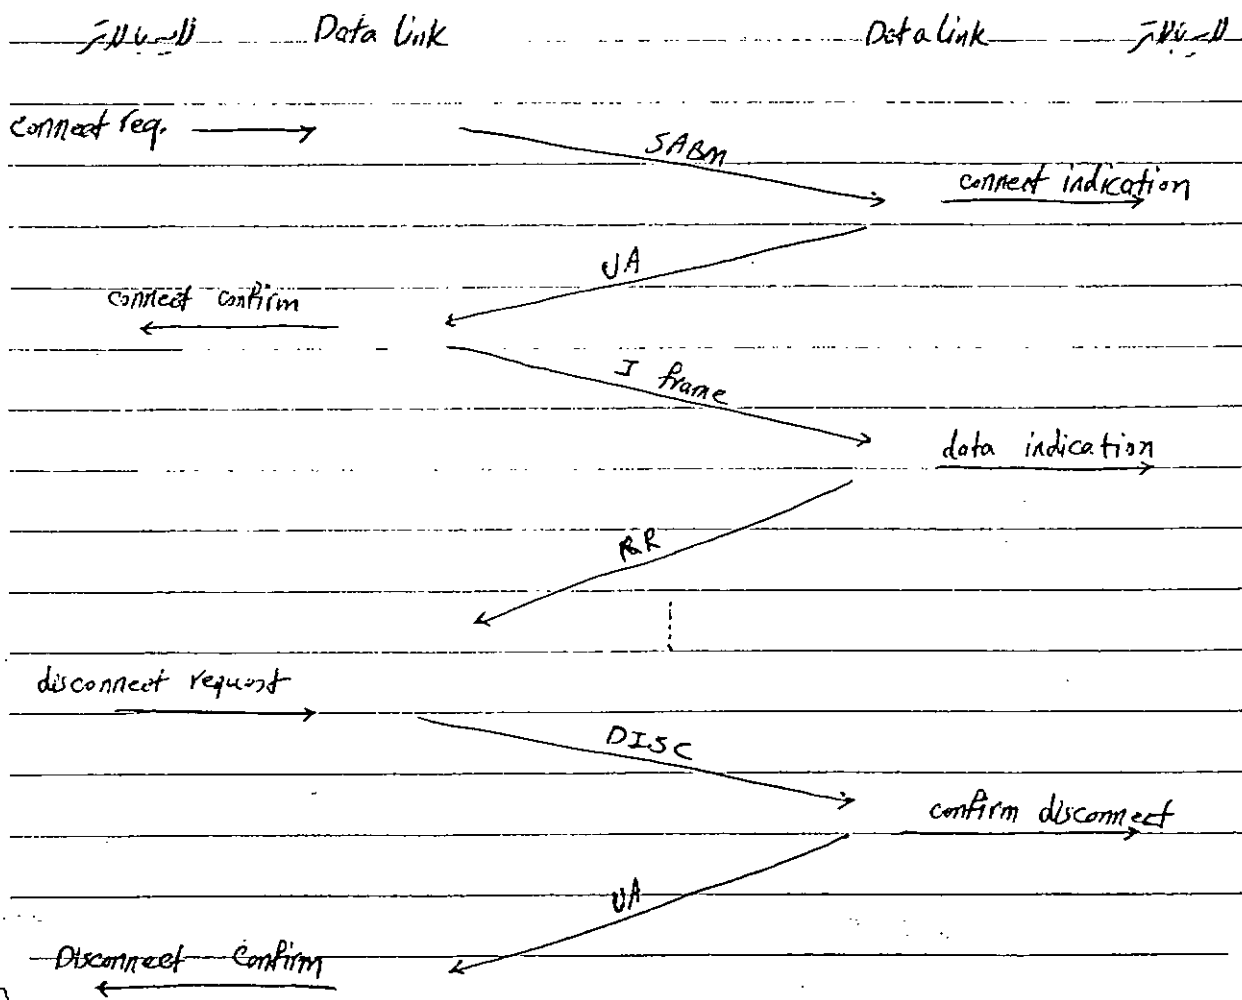 لایه بالاتر Data link Data link لایه بالاتر
connect req.
SABM
connect indication
UA
connect confirm
I frame
data indication
RR
disconnect request
DISC
confirm disconnect
UA
Disconnect Confirm